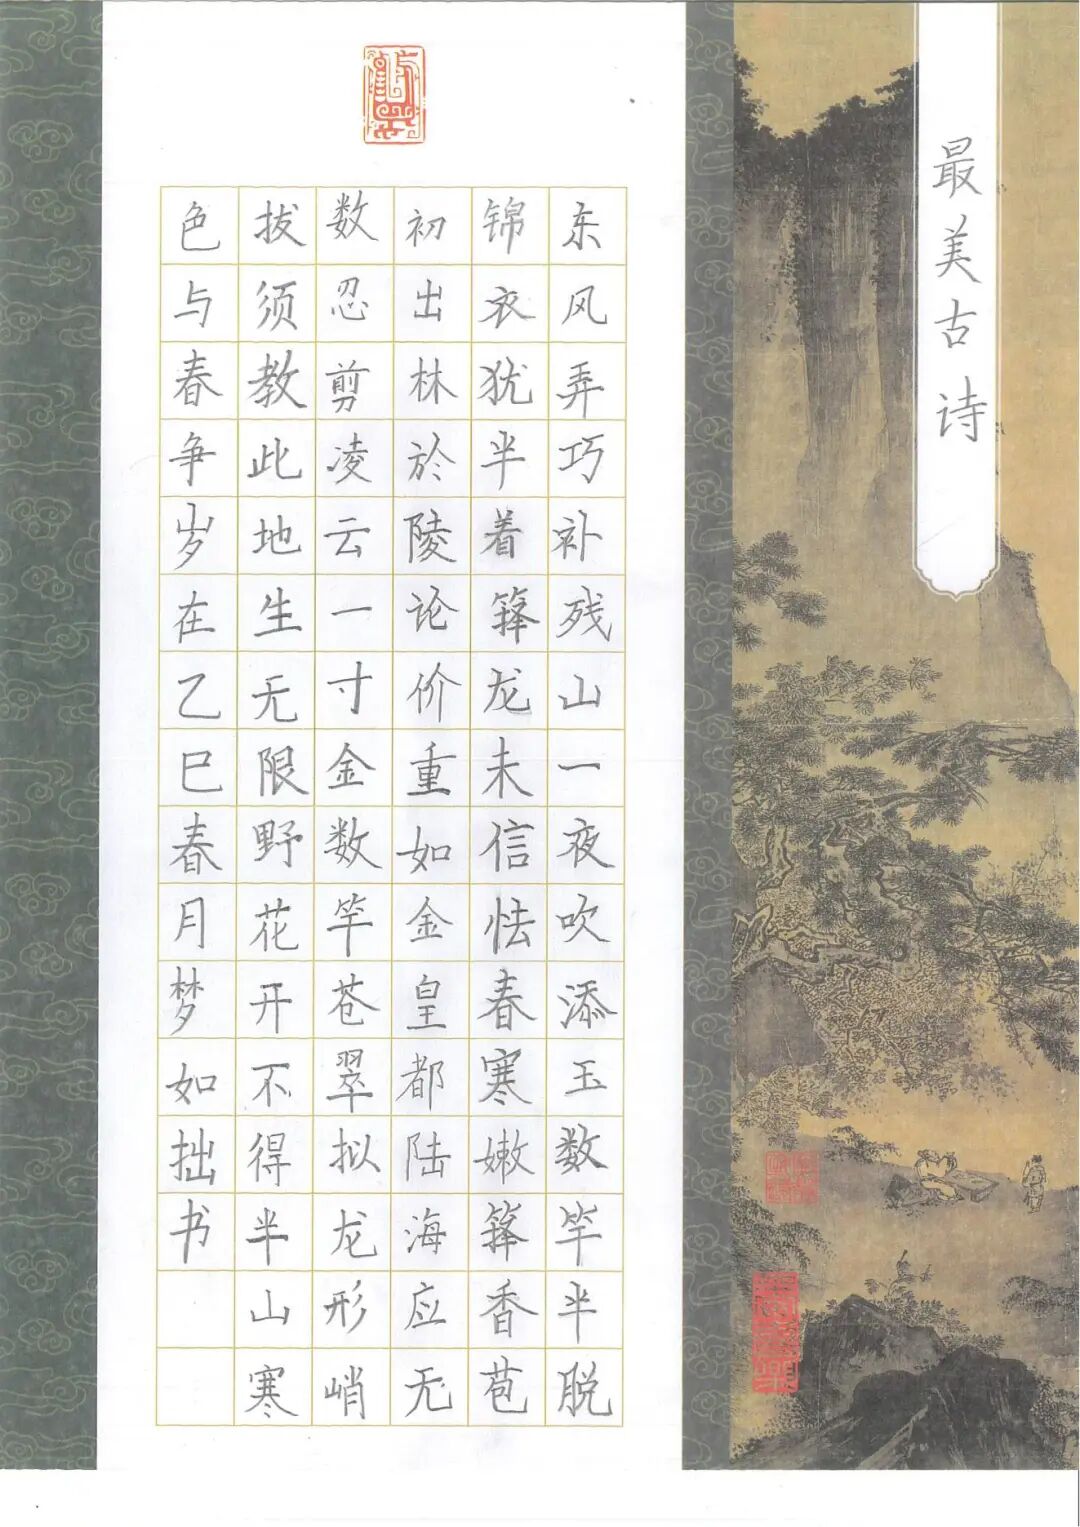 最美古诗
东风弄巧补残山一夜吹添玉数竿半脱
锦衣犹半着箨龙未信怯春寒嫩箨香苞
初出林於陵论价重如金皇都陆海应无
数忍剪凌云一寸金数竿苍翠拟龙形峭
拔须教此地生无限野花开不得半山寒
色与春争岁在乙巳春月梦如拙书